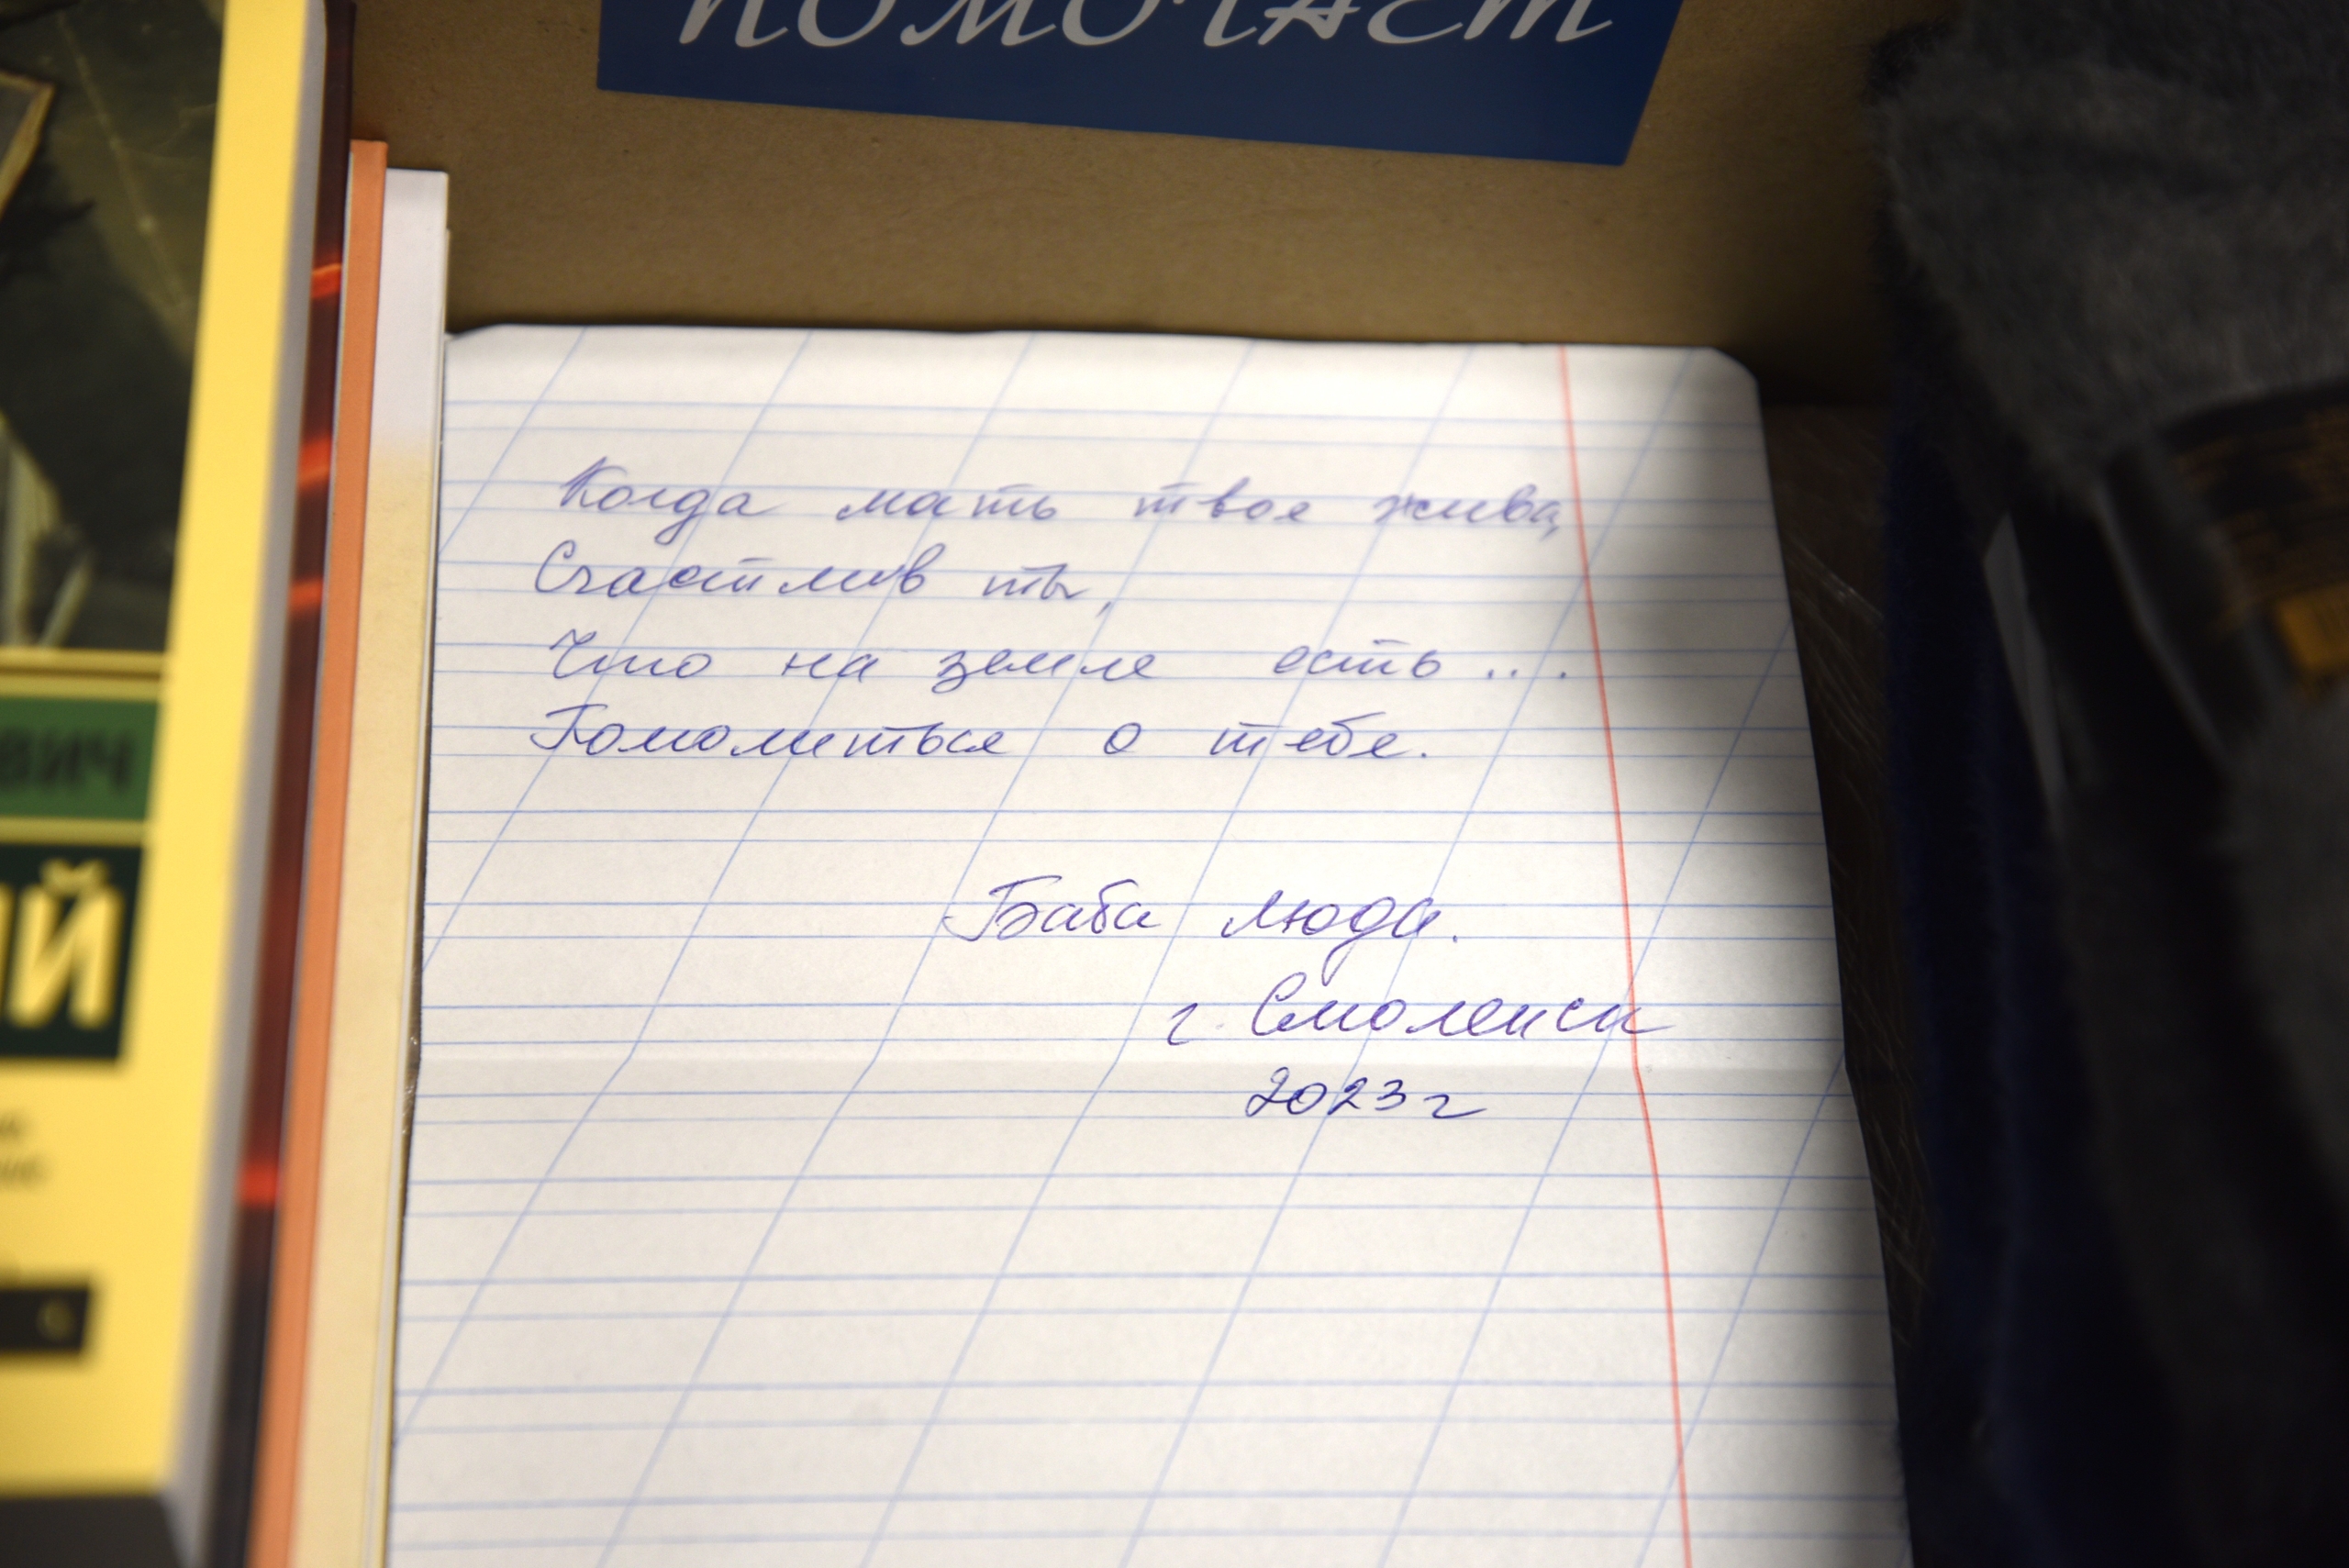 помогает
Когда мать твоя жива,
Счастлив ты,
Что на земле есть....
Помолиться о тебе.
Баба Люда.
г. Смоленск
2023 г
ВИЧ
ИЙ